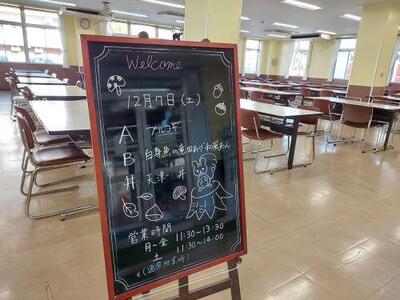 Welcome
12月7日(土)
A プルコギ
B 白身魚の竜田あげ和風あん
丼 天津丼
営業時間
月-金 11:30~13:30
土 11:30~14:00
(通常授業時)